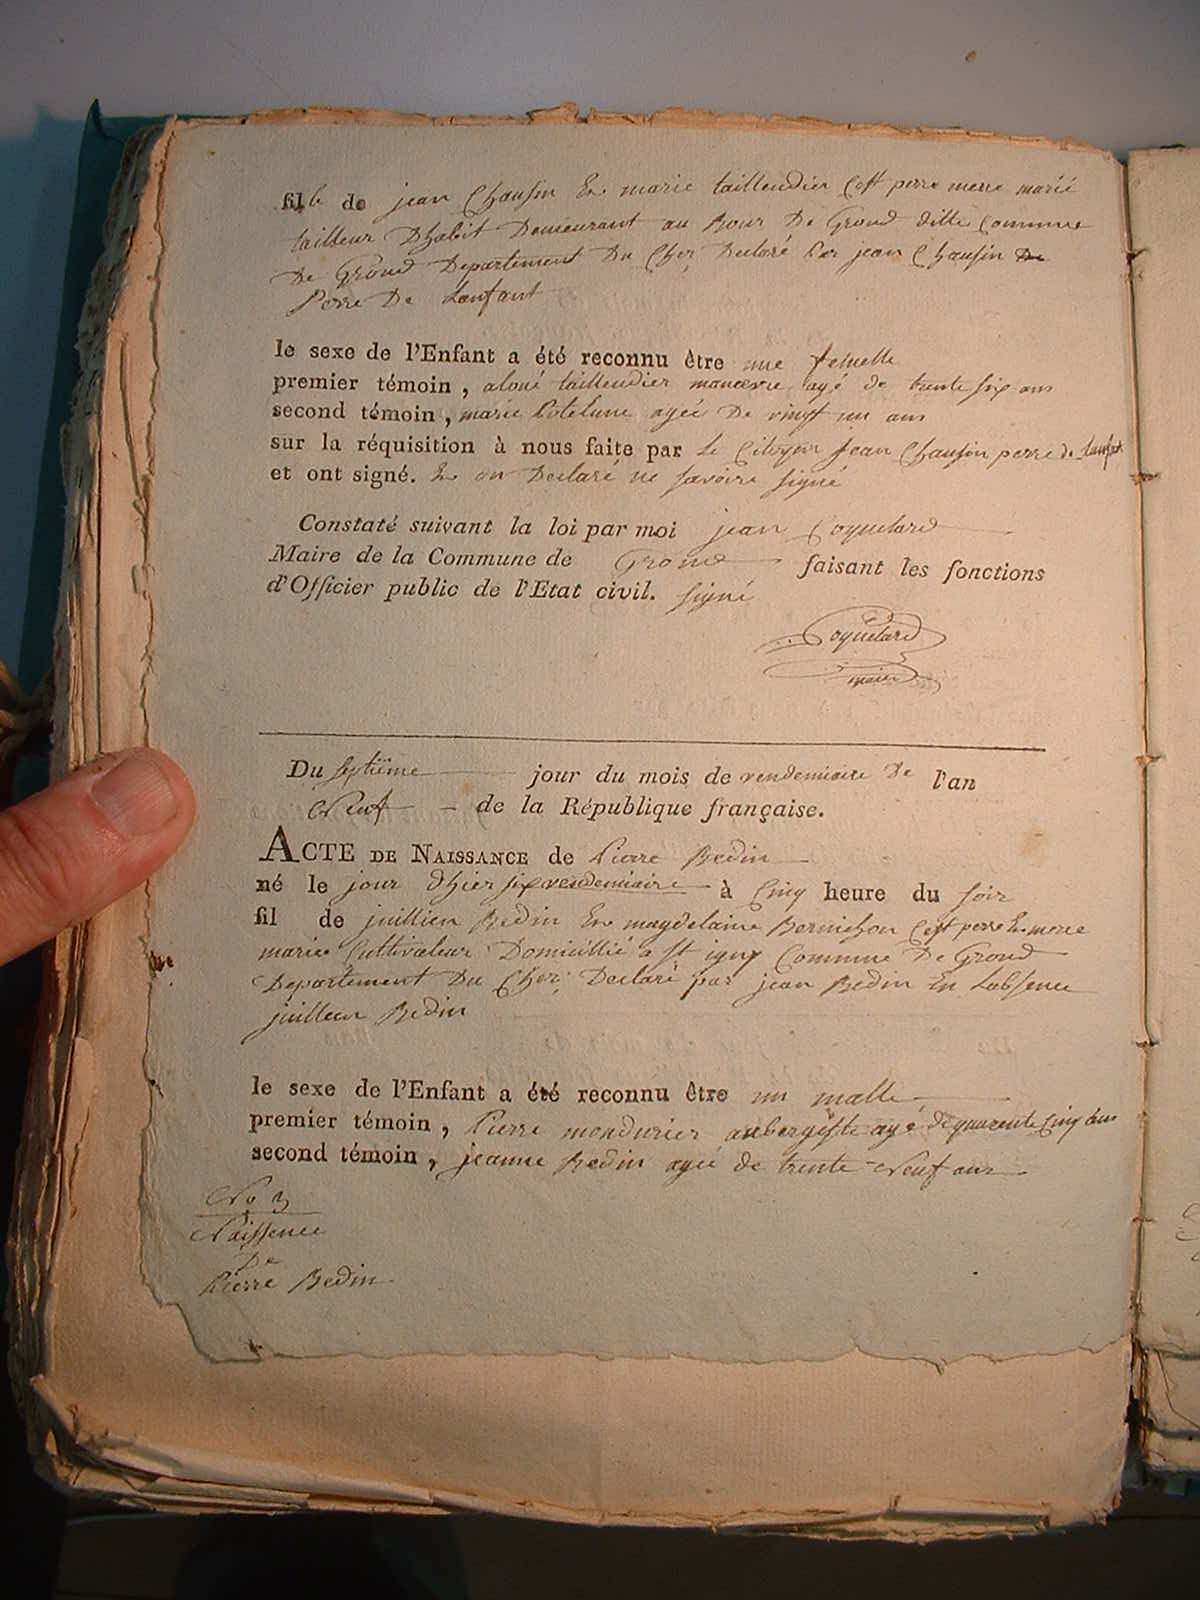 fille de jean Chausin Et marie taillendier Cest perre merre marié
tailleur Dhabit Demeurant au Bour De Grond ditte Commune
De Grond Departement Du Cher Declaré Par jean Chausin De
Perre De Lanfant
le sexe de l'Enfant a été reconnu être une femelle
premier témoin, manœvre agé de trente six ans
second témoin, marie agée De vingt un ans
sur la réquisition à nous faite par Le Citoyen Jean Chausin perre de Lanfant
et ont signé. Et on Declaré ne savoire signé
Constaté suivant la loi par moi jean Coquelard
Maire de la Commune de Grond faisant les fonctions
d'Officier public de l'Etat civil. signé
Coquelard
maire
Du septiéme jour du mois de vendemiaire De l'an
Neuf - de la République française.
ACTE DE NAISSANCE de Pierre Bedin
né le jour dhier six vendemiaire à Cinq heure du soir
fil de juillien Bedin Et magdelaine Bernichon Cest perre Et mere
marié Cultivateur Domicillié a st igny Commune De Grond
Departement Du Cher Declaré par jean Bedin En Labsence
juillien Bedin
le sexe de l'Enfant a été reconnu être un malle
premier témoin, Pierre mendurier aubergiste agé de quarente Cinq ans
second témoin, jeanne Bedin agée de trente Neuf ans
No 3
Naissence
De
Pierre Bedin